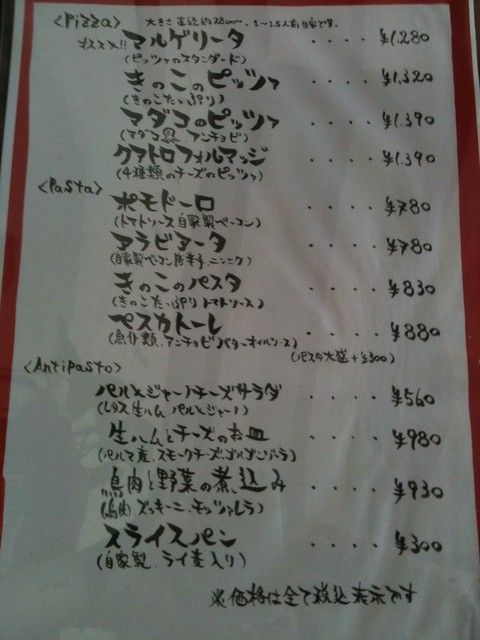 <Pizza> 大きさ直径約28cm〜、1〜1.5人前目安です。
オススメ!! マルゲリータ ････ ¥1.280
(ピッツァのスタンダード)
きのこのピッツァ ････ ¥1.320
(きのこたっぷり)
マダコのピッツァ ････ ¥1.390
(マダコ アンチョビ)
クアトロフォルマッジ ････ ¥1.390
(4種類のチーズのピッツァ)
<Pasta> ポモドーロ ････ ¥780
(トマトソース自家製ベーコン)
アラビアータ ････ ¥780
(自家製ベーコン唐辛子、ニンニク)
きのこのパスタ ････ ¥830
(きのこたっぷりトマトソース)
ペスカトーレ ････ ¥880
(魚介類、アンチョビバターオイルソース) (パスタ大盛+¥300)
<Antipasto>
パルミジャーノチーズサラダ ････ ¥560
(レタス 生ハム パルミジャーノ)
生ハムとチーズのお皿 ････ ¥980
(パルマ産、スモークチーズ、ゴルゴンゾーラ)
鳥肉と野菜の煮込み ････ ¥930
(鳥肉 ズッキーニ、モッツァレラ)
スライスパン ････ ¥300
(自家製、ライ麦入り)
※価格は全て税込表示です